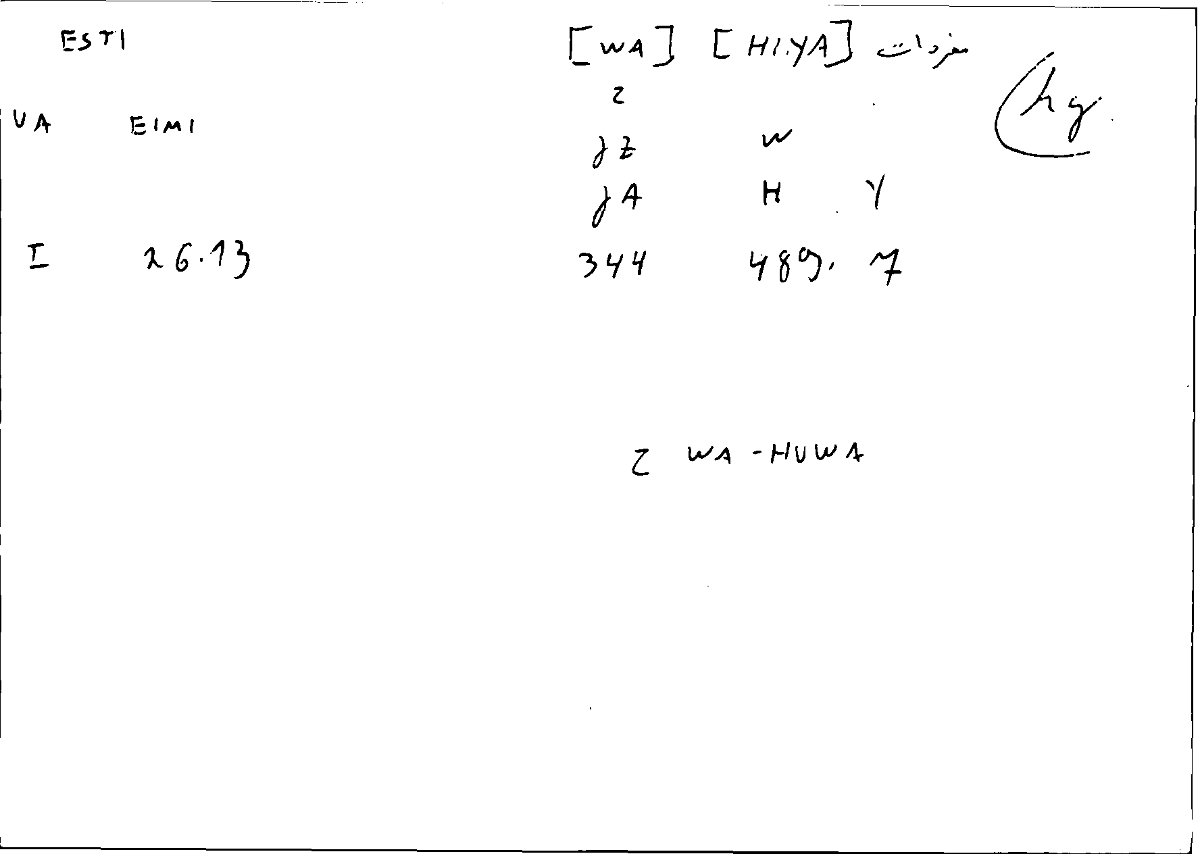 ESTI [WA] [HI.YA] مفردات hg.
z
VA EIMI
jz w
jA H Y
I 26.13 344 489. 7
z WA-HUWA